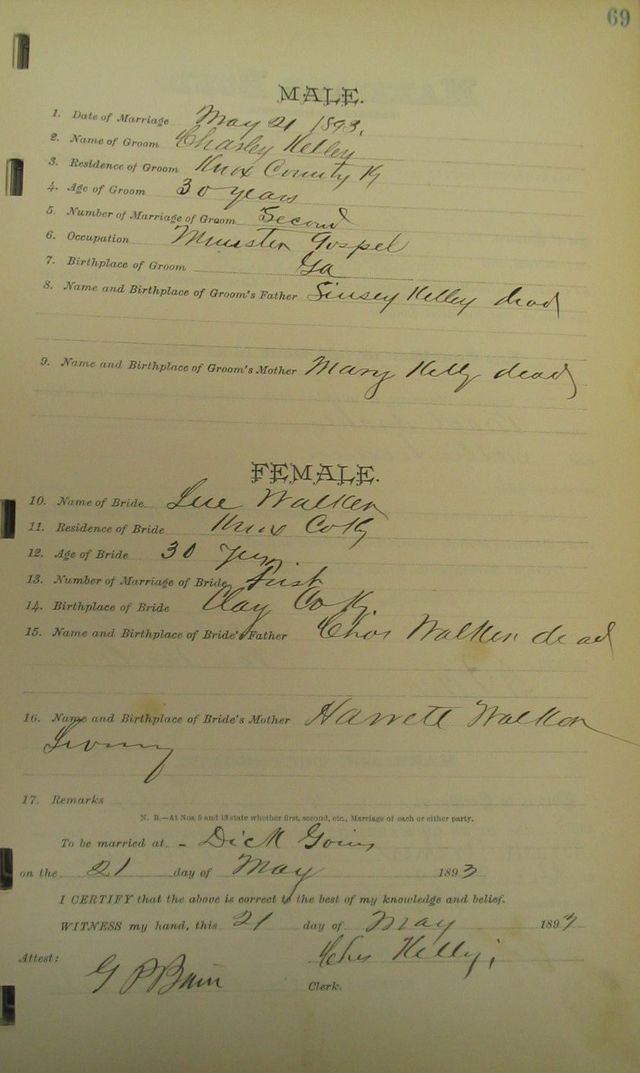 69
MALE.
1. Date of Marriage May 21 1893.
2. Name of Groom Charley Kelley
3. Residence of Groom Knox County Ky
4. Age of Groom 30 years
5. Number of Marriage of Groom Second
6. Occupation Minister Gospel
7. Birthplace of Groom Ga
8. Name and Birthplace of Groom's Father Kelley dead
9. Name and Birthplace of Groom's Mother Mary Kelly dead
FEMALE.
10. Name of Bride Sue Walker
11. Residence of Bride Knox Co Ky
12. Age of Bride 30 years
13. Number of Marriage of Bride First
14. Birthplace of Bride Clay Co Ky.
15. Name and Birthplace of Bride's Father Chas Walker dead
16. Name and Birthplace of Bride's Mother Harrett Walker
Living
17. Remarks
N. B.—At Nos 5 and 13 state whether first, second, etc., Marriage of each or either party.
To be married at - Dick Goins
on the 21 day of May 1893
I CERTIFY that the above is correct to the best of my knowledge and belief.
WITNESS my hand, this 21 day of May 1893
Attest: Chas Kelly
G P Bain Clerk.